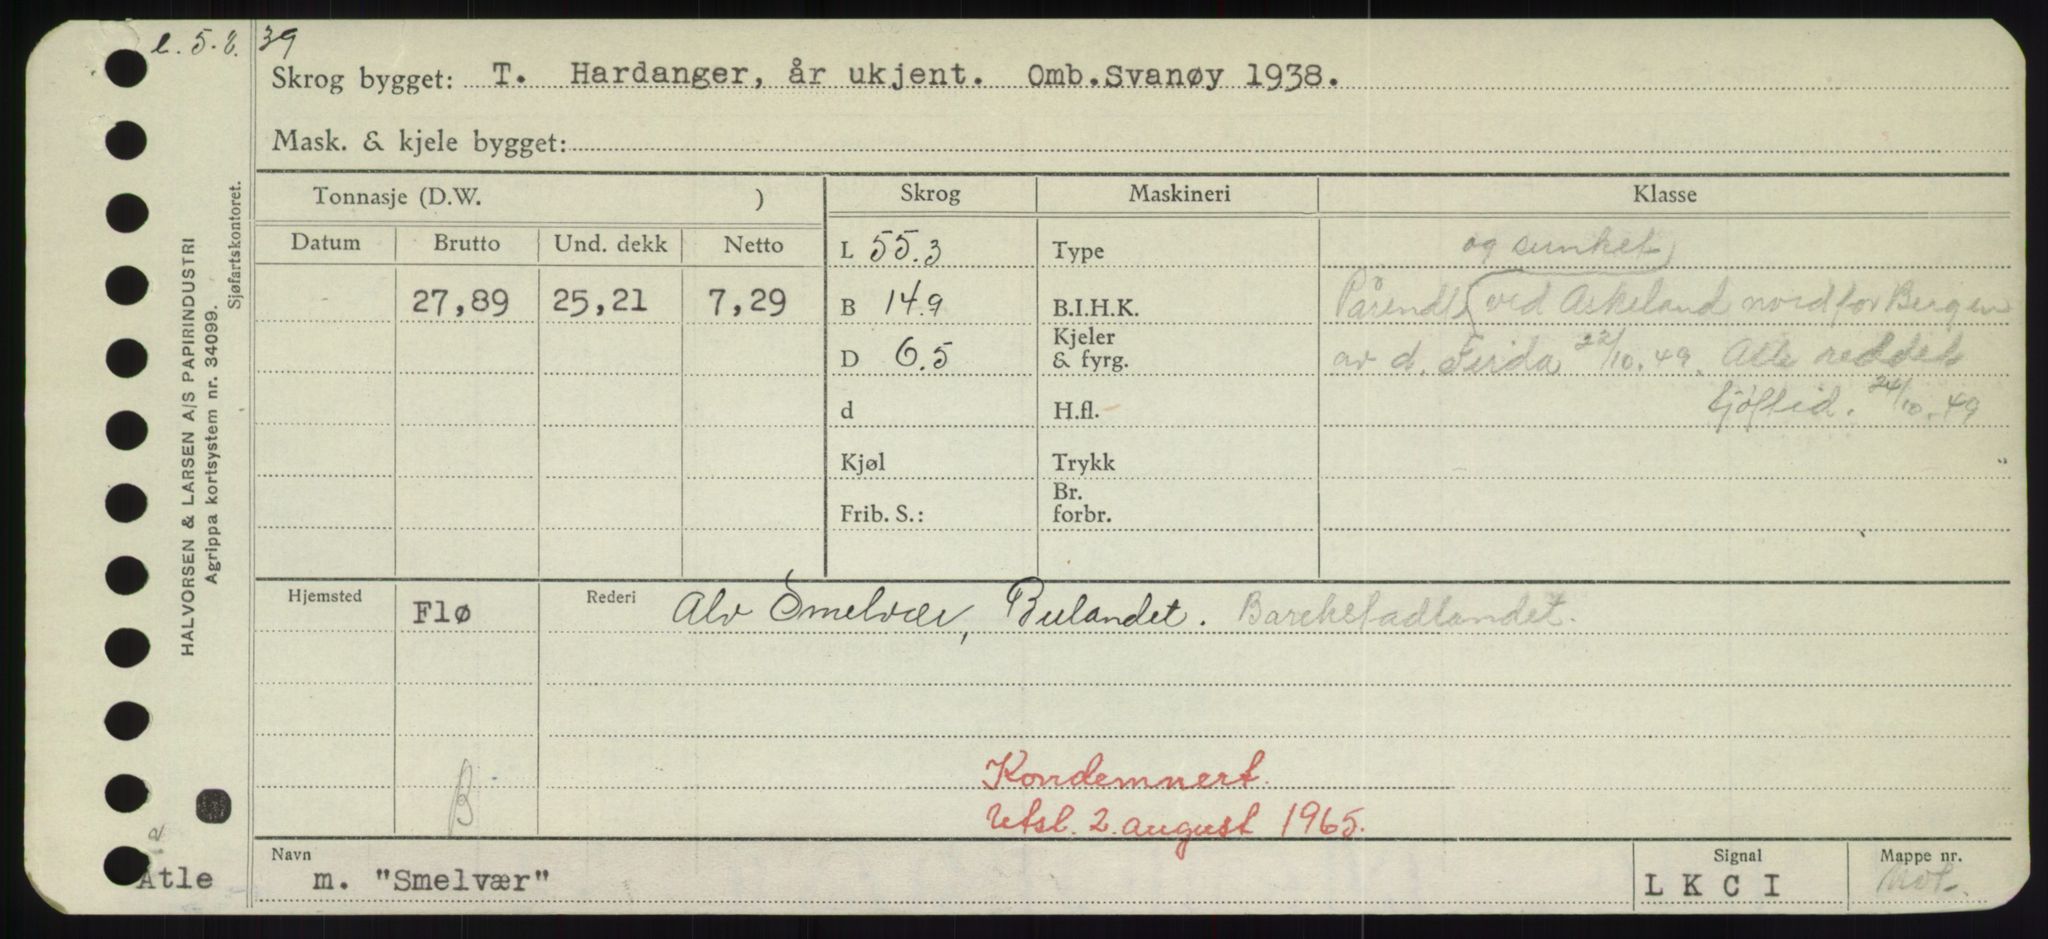 e. 5.8.39
Skrog bygget: T. Hardanger, år ukjent. Omb.Svanøy 1938.
Mask. & kjele bygget:
Tonnasje (D.W. ) Skrog Maskineri Klasse
Datum Brutto Und. dekk Netto
L 55.3 Type og sunket
27,89 25,21 7,29 B 14.9 B.I.H.K. Pårendt ved Askeland nord for Bergen
D 6.5 Kjeler & fyrg. av d. Firda 22/10.49. Alle reddet
d H.fl. Sjøftid. 24/10.49
Kjøl Trykk
Frib. S.: Br. forbr.
Hjemsted Flø Rederi Alv Smelvær, Bulandet.
B
Kondemnert.
Utsl. 2. august 1965.
Atle
Navn m. "Smelvær" Signal L K C I Mappe nr. Mot.
HALVORSEN & LARSEN A/S PAPIRINDUSTRI
Agrippa kortsystem nr. 34099.
Sjøfartskontoret.